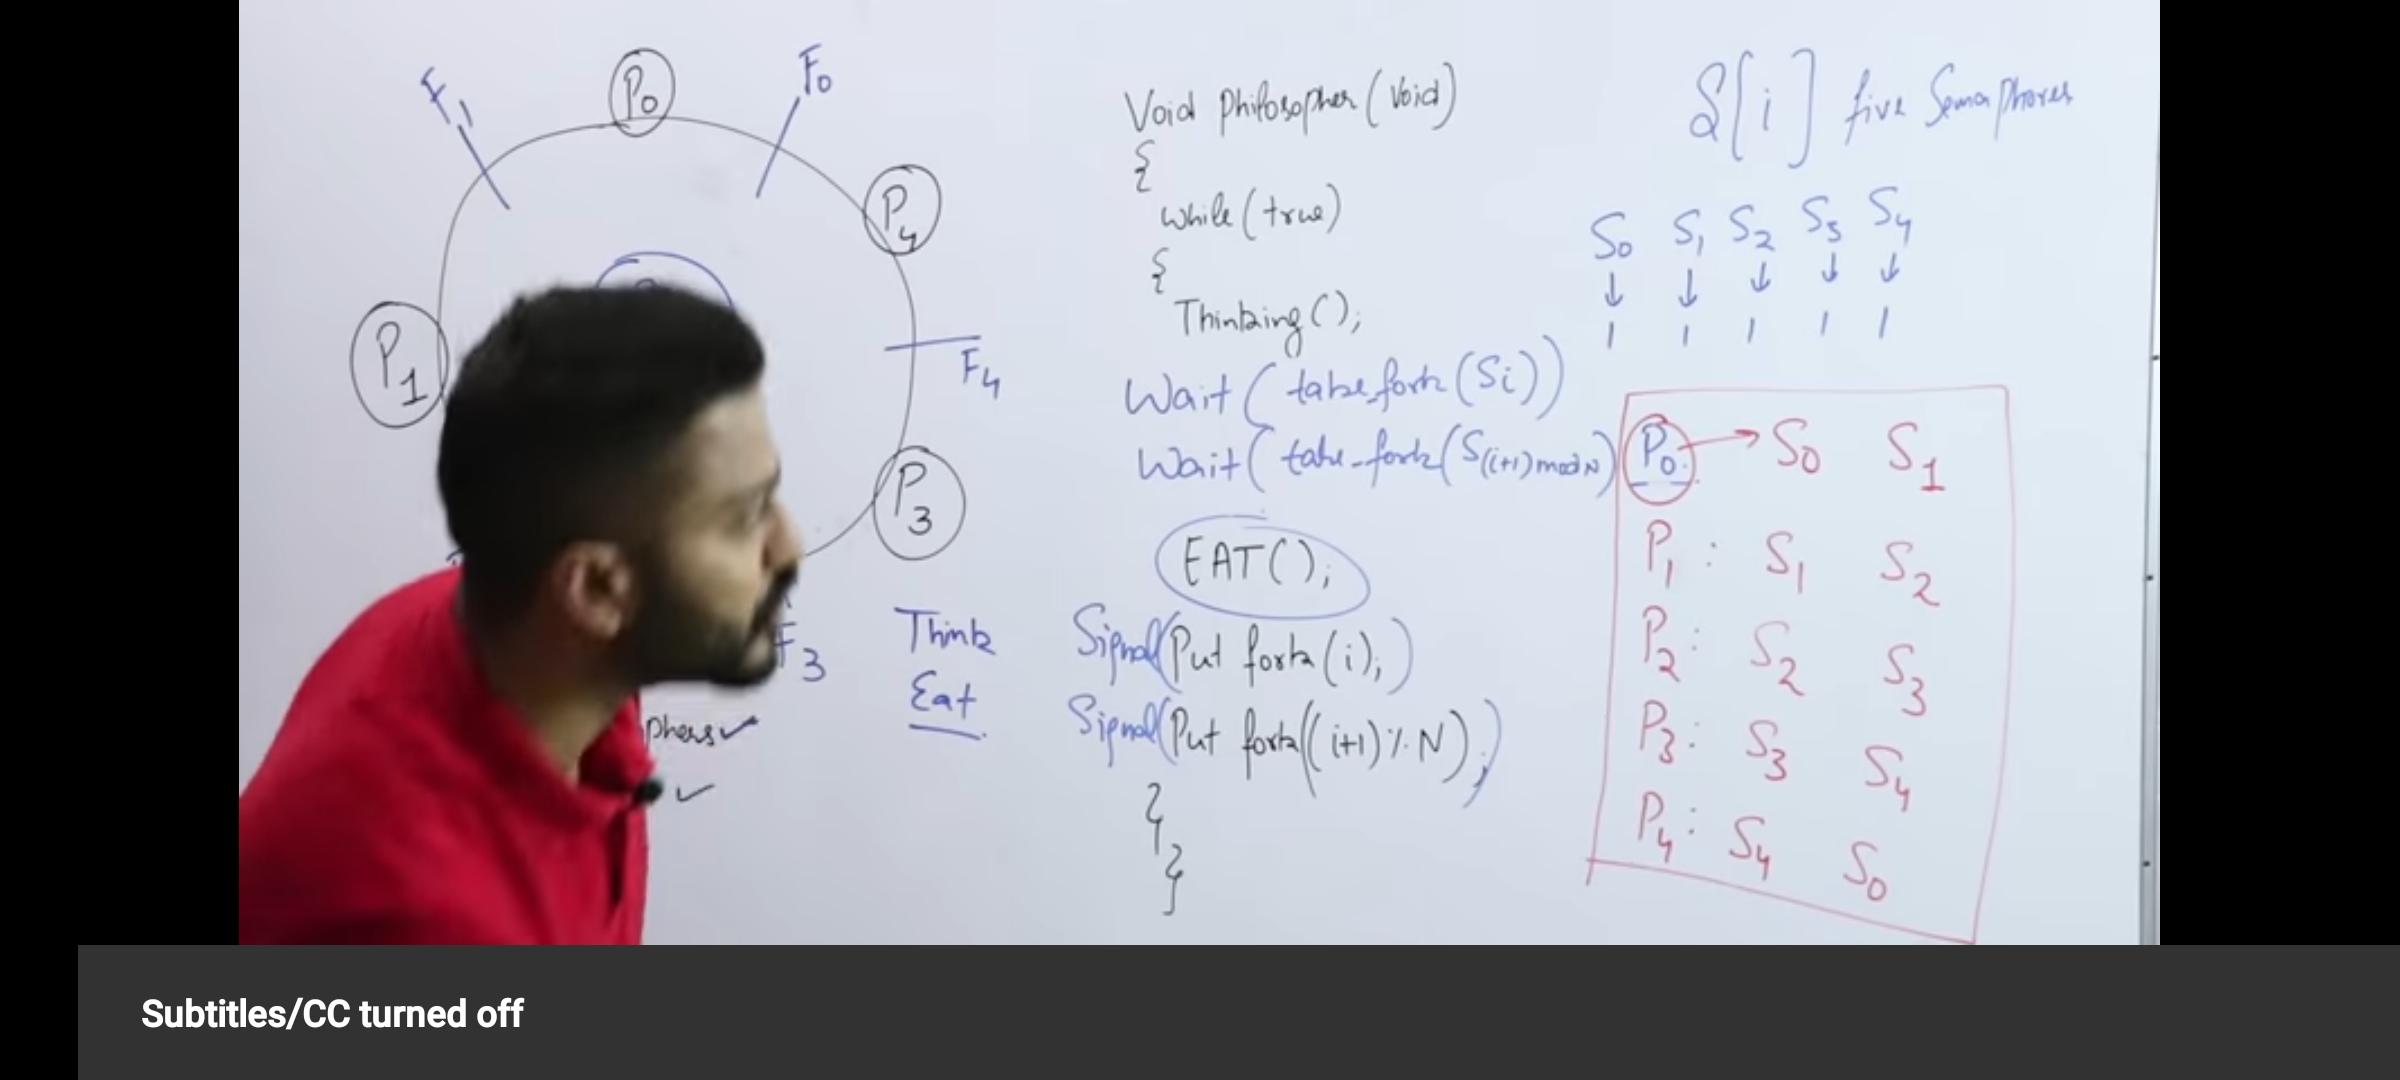 F1
P0
F0
P4
P1
F4
P3
F3
Think
Eat
phers ✓
✓
Void Philosopher (Void)
{
while (true)
{
Thinking();
Wait( take_fork (Si))
Wait( take-fork (S(i+1)mod N)
EAT();
Signal(Put fork (i);)
Signal(Put fork((i+1)%N);)
}
}
S[i] five Semaphores
S0 S1 S2 S3 S4
↓ ↓ ↓ ↓ ↓
1 1 1 1 1
P0 → S0 S1
P1 : S1 S2
P2 : S2 S3
P3 : S3 S4
P4 : S4 S0
Subtitles/CC turned off